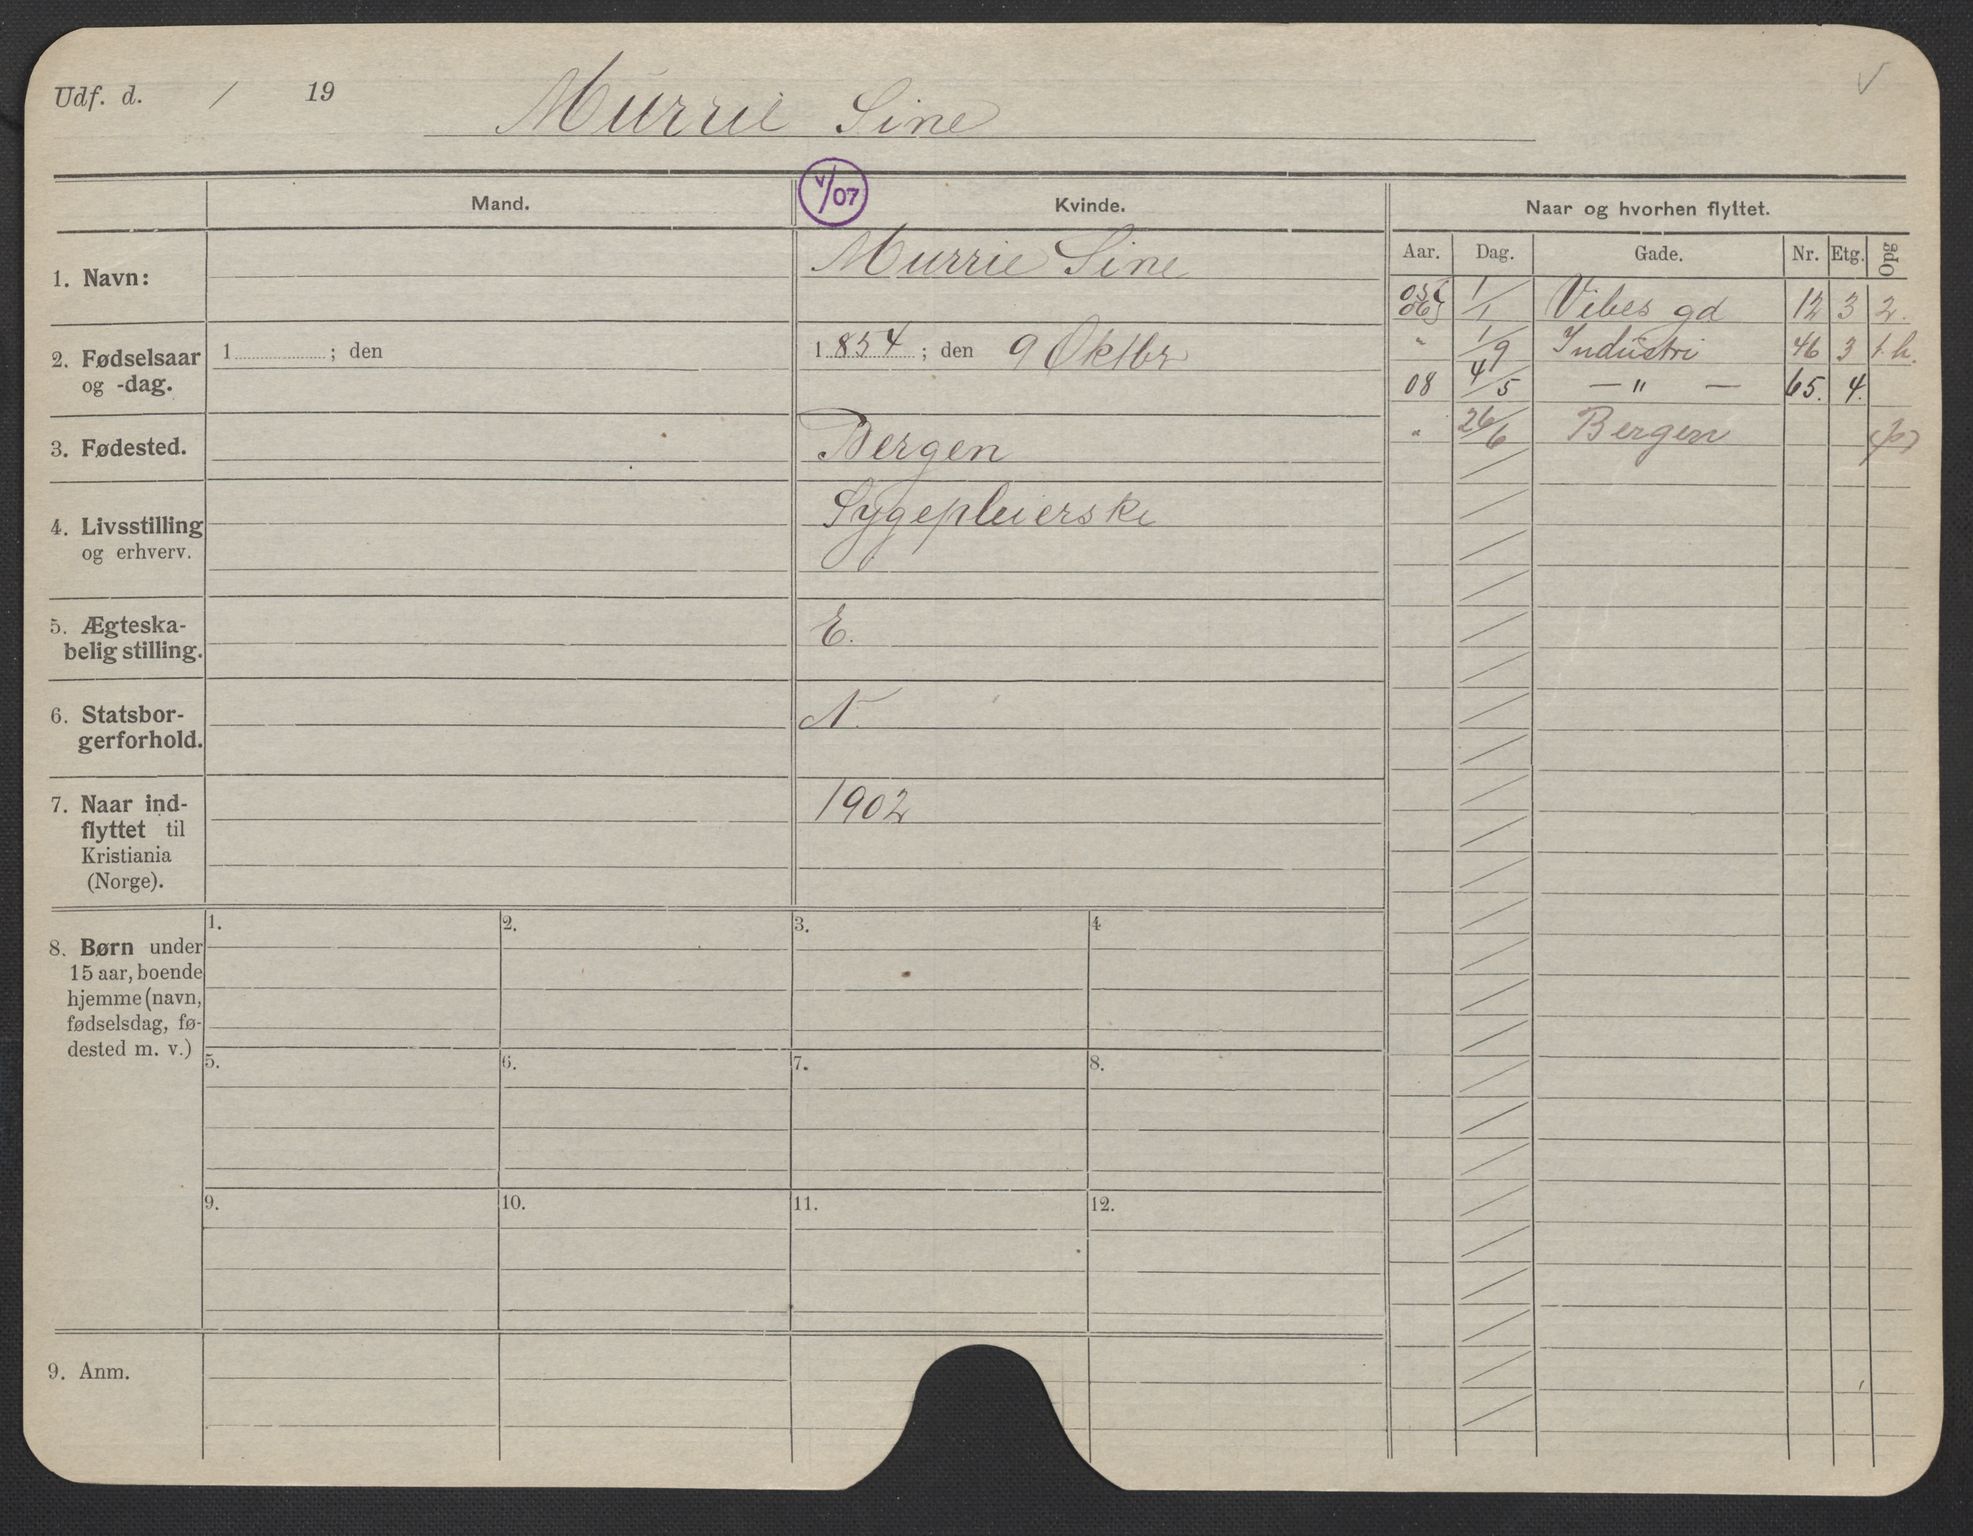 Udf. d. / 19
Murrie Sine
V
V/07
Mand.
Kvinde.
Naar og hvorhen flyttet.
Aar. Dag. Gade. Nr. Etg. Opg
1. Navn:
Murrie Sine
2. Fødselsaar
og -dag.
1 ; den
1854 ; den 9 Oktbr
3. Fødested.
Bergen
4. Livsstilling
og erhverv.
Sygepleierske
5. Ægteska-
belig stilling.
E.
6. Statsbor-
gerforhold.
N.
7. Naar ind-
flyttet til
Kristiania
(Norge).
1902
05
06 1/1 Vibes gd 12 3 2.
" 1/9 Industri 46 3 t.h.
08 4/5 — " — 65. 4.
" 26/6 Bergen
8. Børn under
15 aar, boende
hjemme (navn,
fødselsdag, fø-
dested m. v.)
1. 2. 3. 4
5. 6. 7. 8.
9. 10. 11. 12.
9. Anm.